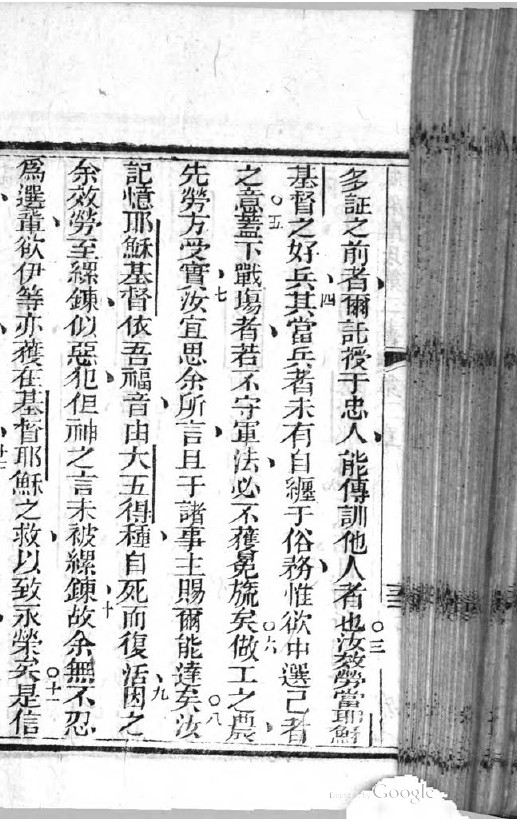 多証之前者爾託授于忠人能傳訓他人者也○三汝效勞當耶穌
基督之好兵四其當兵者未有自纏于俗務惟欲中選己者
之意○五蓋下戰塲者若不守軍法必不獲冕旒矣○六做工之農
先勞方受實七汝宜思余所言且于諸事主賜爾能達矣○八汝
記憶耶穌基督依吾福音由大五得種自死而復活九因之
余效勞至縲鍊似惡犯但神之言未被縲鍊十故余無不忍
爲選輩欲伊等亦獲在基督耶穌之救以致永榮矣○十一是信
Google